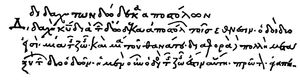 διδαχὴ τῶν δώδεκα ἀποστόλων
Διδαχὴ κυ διὰ τῶν δώδεκα ἀποστόλων τοῖς ἔθνεσιν. ὁδοὶ δύο
εἰσί· μία τῆς ζωῆς καὶ μία τοῦ θανάτου· διαφορὰ δὲ πολλὴ μετα
ξὺ τῶν δύο ὁδῶν. ἡ μὲν οὖν ὁδὸς τῆς ζωῆς ἐστιν αὕτη· πρῶτον ἀγαπή